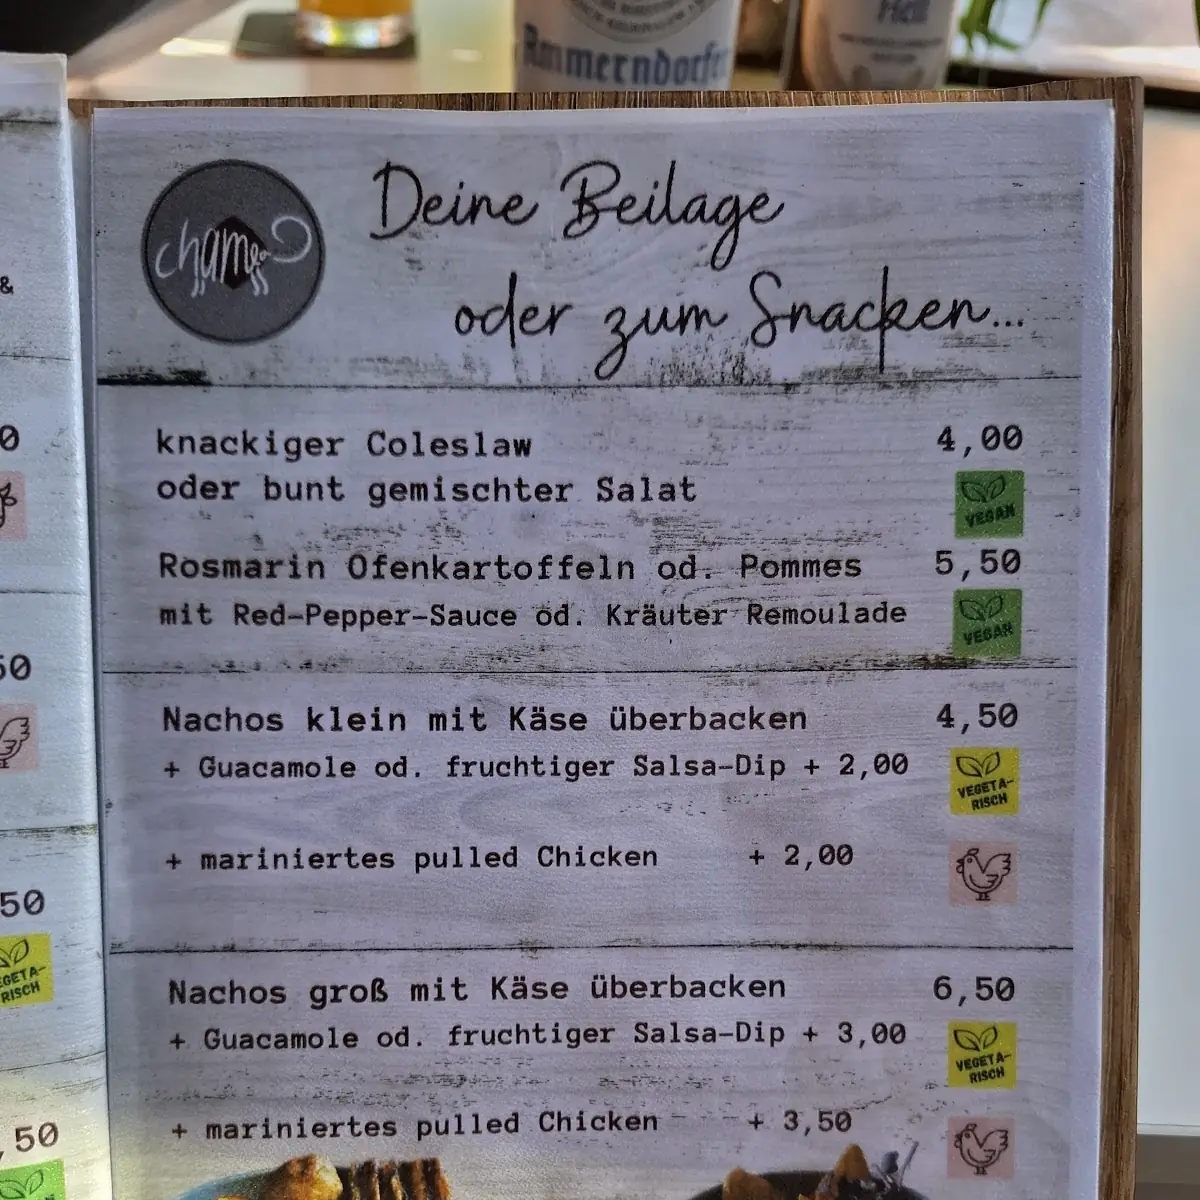 Ammerndorfer
Hell
&
0
50
50
GETA-
RISCH
,50
cham
Deine Beilage
oder zum Snacken...
knackiger Coleslaw 4,00
oder bunt gemischter Salat
VEGAN
Rosmarin Ofenkartoffeln od. Pommes 5,50
mit Red-Pepper-Sauce od. Kräuter Remoulade
VEGAN
Nachos klein mit Käse überbacken 4,50
+ Guacamole od. fruchtiger Salsa-Dip + 2,00
VEGETA-
RISCH
+ mariniertes pulled Chicken + 2,00
Nachos groß mit Käse überbacken 6,50
+ Guacamole od. fruchtiger Salsa-Dip + 3,00
VEGETA-
RISCH
+ mariniertes pulled Chicken + 3,50